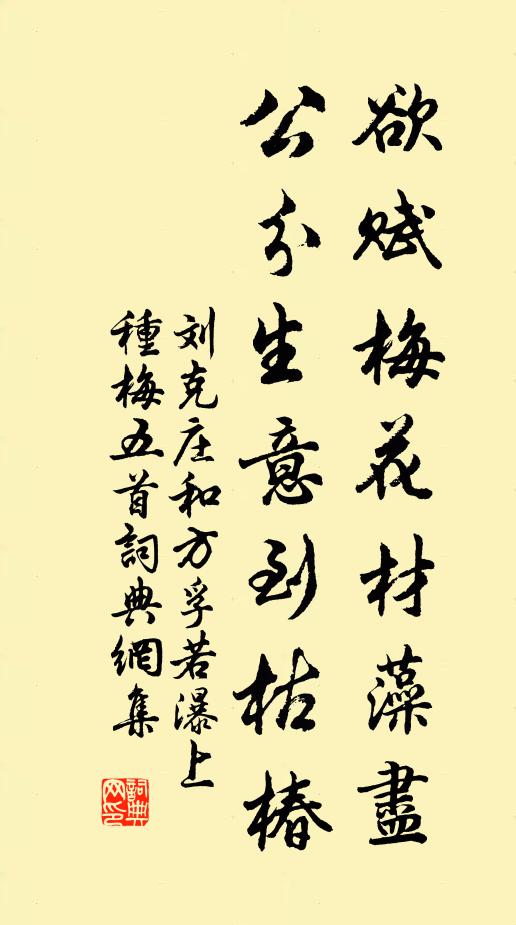 欲赋梅花材藻盡
公分生意到枯椿
刘克庄和方孚若瀑上
種梅五首詞典網集
詞典
网印